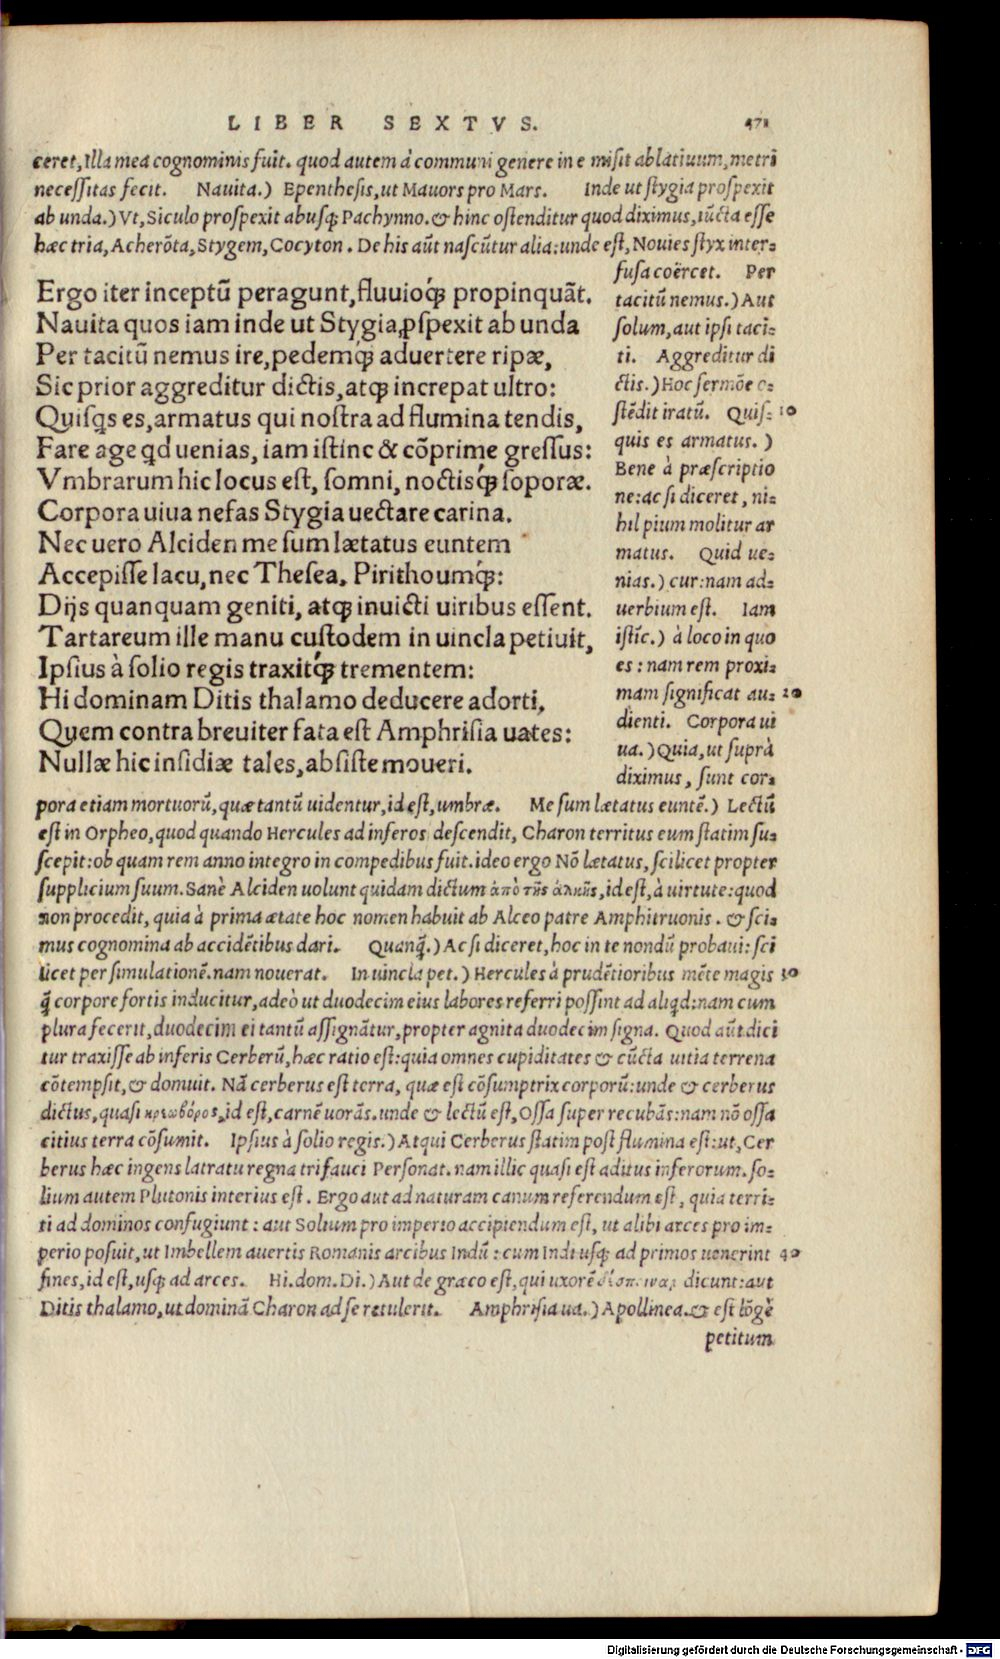 LIBER SEXTVS. 471
ceret, Illa mea cognominis fuit. quod autem à communi genere in e misit ablatiuum, metri
necessitas fecit. Nauita.) Epenthesis, ut Mauors pro Mars. Inde ut stygia prospexit
ab unda.) Vt, Siculo prospexit abusqꝫ Pachynno. & hinc ostenditur quod diximus, iũcta esse
hæc tria, Acherõta, Stygem, Cocyton. De his aũt nascũtur alia: unde est, Nouies styx inter-
Ergo iter inceptũ peragunt, fluuioqꝫ́ propinquãt.
Nauita quos iam inde ut Stygia ꝓspexit ab unda
Per tacitũ nemus ire, pedemqꝫ́ aduertere ripæ,
Sic prior aggreditur dictis, atqꝫ increpat ultro:
Quisqs es, armatus qui nostra ad flumina tendis,
Fare age qd uenias, iam istinc & cõprime gressus:
Vmbrarum hic locus est, somni, noctisqꝫ́ soporæ.
Corpora uiua nefas Stygia uectare carina.
Nec uero Alciden me sum lætatus euntem
Accepisse lacu, nec Thesea, Pirithoumqꝫ́:
Dijs quanquam geniti, atqꝫ inuicti uiribus essent.
Tartareum ille manu custodem in uincla petiuit,
Ipsius à solio regis traxitqꝫ́ trementem:
Hi dominam Ditis thalamo deducere adorti,
Quem contra breuiter fata est Amphrisia uates:
Nullæ hic insidiæ tales, absiste moueri.
fusa coërcet. Per
tacitũ nemus.) Aut
solum, aut ipsi taci-
ti. Aggreditur di
ctis.) Hoc sermõe o-
stẽdit iratũ. Quis- 10
quis es armatus.)
Bene à præscriptio
ne: ac si diceret, ni-
hil pium molitur ar
matus. Quid ue-
nias.) cur: nam ad-
uerbium est. Iam
istĩc.) à loco in quo
es: nam rem proxi-
mam significat au- 20
dienti. Corpora ui
ua.) Quia, ut suprà
diximus, sunt cor-
pora etiam mortuorũ, quæ tantũ uidentur, id est, umbræ. Me sum lætatus euntẽ.) Lectũ
est in Orpheo, quod quando Hercules ad inferos descendit, Charon territus eum statim su-
scepit: ob quam rem anno integro in compedibus fuit. ideo ergo Nõ lætatus, scilicet propter
supplicium suum. Sanè Alciden uolunt quidam dictum ἀπὸ τῆς ἀλκῆς, id est, à uirtute: quod
non procedit, quia à prima ætate hoc nomen habuit ab Alceo patre Amphitruonis. & sci-
mus cognomina ab accidẽtibus dari. Quanq̃.) Ac si diceret, hoc in te nondũ probaui: sci
licet per simulationẽ. nam nouerat. In uincla pet.) Hercules à prudẽtioribus mẽte magis 30
q̃ corpore fortis inducitur, adeò ut duodecim eius labores referri possint ad aliqd: nam cum
plura fecerit, duodecim ei tantũ assignãtur, propter agnita duodecim signa. Quod aũt dici
tur traxisse ab inferis Cerberũ, hæc ratio est: quia omnes cupiditates & cũcta uitia terrena
cõtempsit, & domuit. Nã cerberus est terra, quæ est cõsumptrix corporũ: unde & cerberus
dictus, quasi κρεωβόρος, id est, carnẽ uorãs. unde & lectũ est, Ossa super recubãs: nam nõ ossa
citius terra cõsumit. Ipsius à solio regis.) Atqui Cerberus statim post flumina est: ut, Cer
berus hæc ingens latratu regna trifauci Personat. nam illic quasi est aditus inferorum. so-
lium autem Plutonis interius est. Ergo aut ad naturam canum referendum est, quia terri-
ti ad dominos confugiunt: aut Solium pro imperio accipiendum est, ut alibi arces pro im-
perio posuit, ut Imbellem auertis Romanis arcibus Indũ: cum Indi usqꝫ ad primos uenerint 40
fines, id est, usqꝫ ad arces. Hi. dom. Di.) Aut de græco est, qui uxorẽ dicunt: aut
Ditis thalamo, ut dominã Charon ad se retulerit. Amphrisia ua.) Apollinea. & est lõgè
petitum
Digitalisierung gefördert durch die Deutsche Forschungsgemeinschaft - DFG